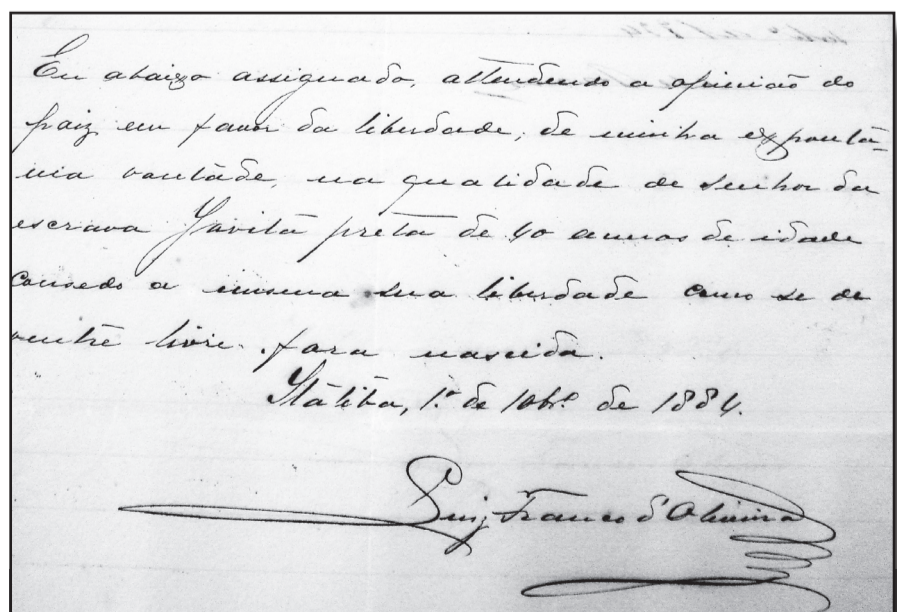 Eu abaixo assignado, attendendo a opinião do
paiz em favor da liberdade, de minha expontâ-
nia vontade, na qualidade de senhor da
escrava Javita preta de 40 annos de idade
consedo a mesma sua liberdade como se de
ventre livre fora nascida.
Itatiba, 1º de 10bro de 1884.
Luiz Franco d'Oliveira